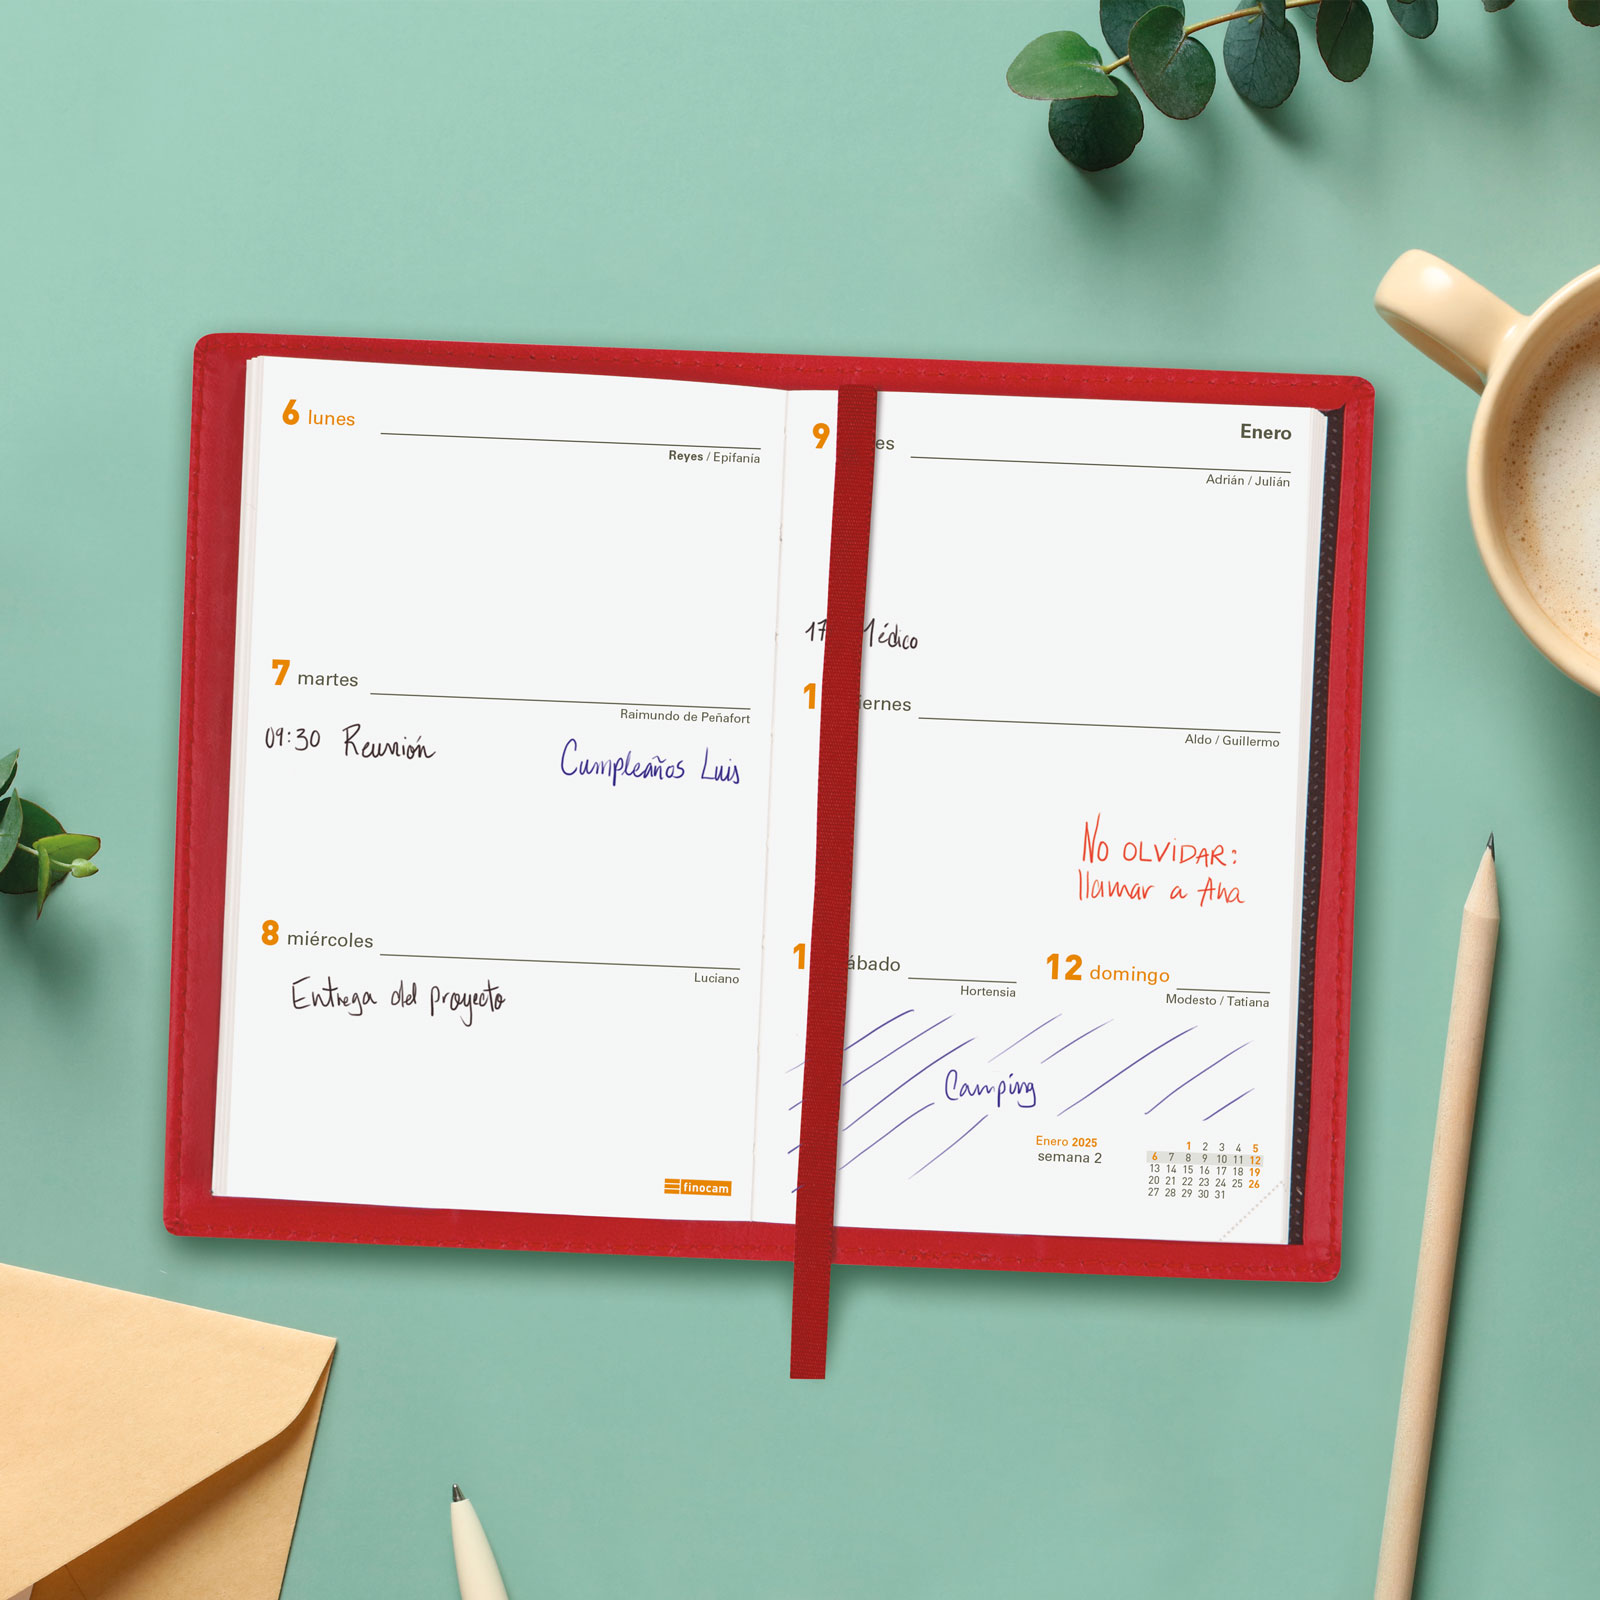 6 lunes
Reyes / Epifanía
7 martes
Raimundo de Peñafort
09:30 Reunión
Cumpleaños Luis
8 miércoles
Luciano
Entrega del proyecto
finocam
Enero
9 es
Adrián / Julián
17 Médico
1 iernes
Aldo / Guillermo
NO OLVIDAR:
llamar a Ana
1 ábado
Hortensia
12 domingo
Modesto / Tatiana
Camping
Enero 2025
semana 2
1 2 3 4 5
6 7 8 9 10 11 12
13 14 15 16 17 18 19
20 21 22 23 24 25 26
27 28 29 30 31